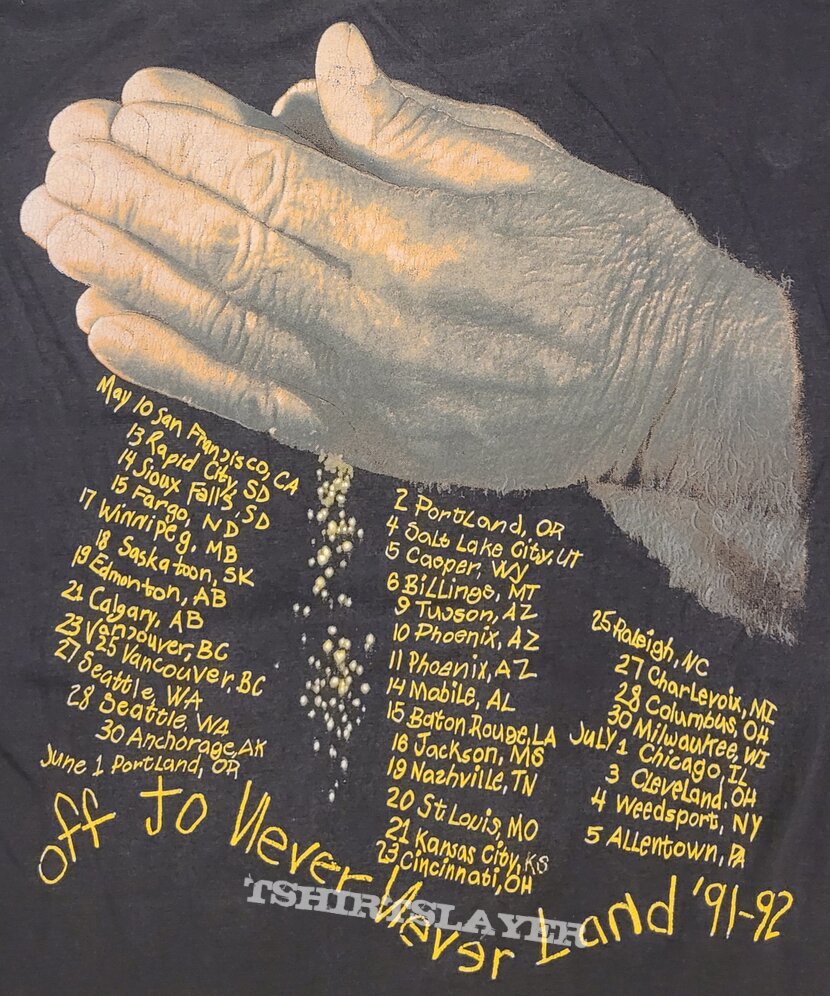 May 10 San Francisco, CA
13 Rapid City, SD
14 Sioux Falls, SD
15 Fargo, ND
17 Winnipeg, MB
18 Saskatoon, SK
19 Edmonton, AB
21 Calgary, AB
23 Vancouver, BC
25 Vancouver, BC
27 Seattle, WA
28 Seattle, WA
30 Anchorage, AK
June 1 Portland, OR
2 Portland, OR
4 Salt Lake City, UT
5 Casper, WY
6 Billings, MT
9 Tucson, AZ
10 Phoenix, AZ
11 Phoenix, AZ
14 Mobile, AL
15 Baton Rouge, LA
16 Jackson, MS
19 Nashville, TN
20 St. Louis, MO
21 Kansas City, KS
23 Cincinnati, OH
25 Raleigh, NC
27 Charlevoix, MI
28 Columbus, OH
30 Milwaukee, WI
July 1 Chicago, IL
3 Cleveland, OH
4 Weedsport, NY
5 Allentown, PA
off to Never Never Land '91-92
TSHIRTSLAYER